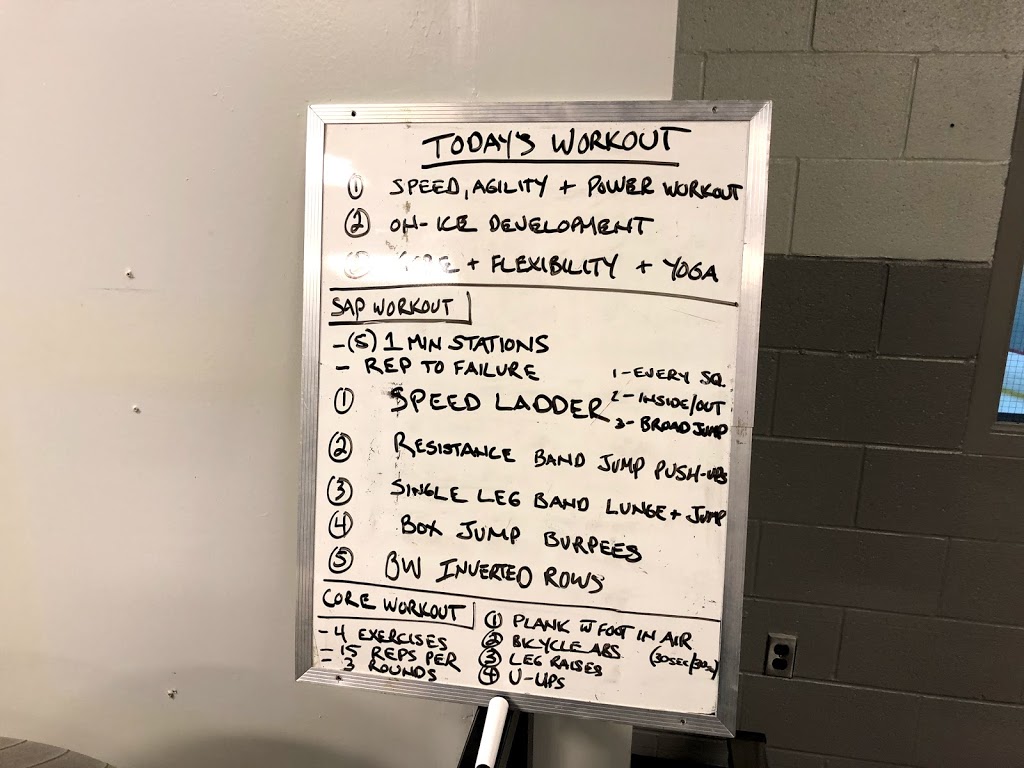 TODAY'S WORKOUT
① SPEED, AGILITY + POWER WORKOUT
② ON-ICE DEVELOPMENT
③ CORE + FLEXIBILITY + YOGA
SAP WORKOUT
-(5) 1 MIN STATIONS
- REP TO FAILURE
① SPEED LADDER
1-EVERY SQ.
2-INSIDE/OUT
3-BROAD JUMP
② RESISTANCE BAND JUMP PUSH-UPS
③ SINGLE LEG BAND LUNGE + JUMP
④ BOX JUMP BURPEES
⑤ BW INVERTED ROWS
CORE WORKOUT
- 4 EXERCISES
- 15 REPS PER
- 3 ROUNDS
① PLANK W FOOT IN AIR
② BICYCLE ABS (30SEC/
③ LEG RAISES
④ U-UPS